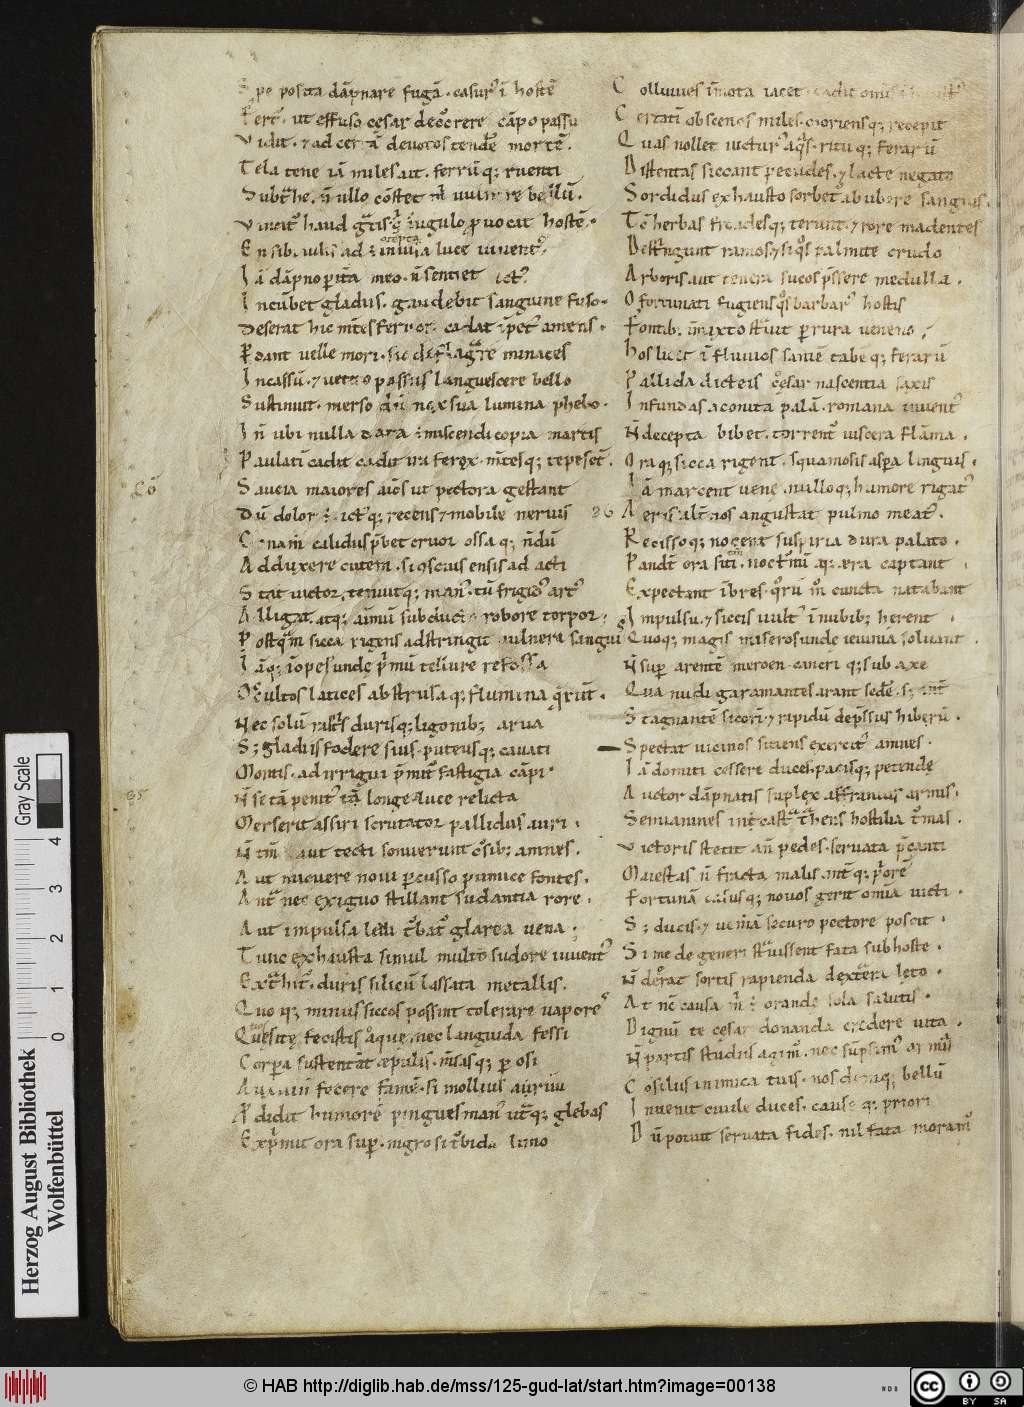 Spe posita dāpnare fugā. casur᾽ ī hostē
Fert᾽. ut effuso cęsar decoͬrere cāpo passu
Vidit. ⁊ ad certā deuotos tendere mortē.
Tela tene iā miles ait. ferrūq; ruenti
Subtͣhe. n̄ ullo cōstet m̄ uulnere bellū.
Vincit᾽ haud gͣtis iugulo ꝓuocat hostē.
En sibi uilis adē inuisa luce iuuent᾽.
Iā dāpno ꝑitͣa meo. n̄ sentiet ict᾽
Incūbet gladiis. gaudebit sanguine fuso.
Deserat hic m̄tes feruor. cadat īpet᾽ amens.
Pͤdant uelle mori. sic deflagͣre minaces
Incassū. ⁊ uetito passus languescere bello
Sustinuit. merso dū nox sua lumina phebo.
In̄ ubi nulla data ē miscendi copia martis
Paulatī cadit ira ferox. m̄tesq; tepesct̄.
Saucia maiores aīos ut pectora gestant
Dū dolor ē ict᾽q; recens ⁊ mobile neruis
Conamͫ calidus p̄bet cruor ossa q; nōdū
Adduxere cutem. si q̄scius ensis ad acti
Stat uictor. tenuitq; man᾽. tū frigid᾽ art᾽
Alligat. atq; aīmū subducto robore torpor.
Postqͣm sicca rigens adstringit uulnera sanguis
Iāq; īopes unde pͥmū tellure refossa
Occultos latices abstrusaq; flumina qͥrūt.
Nec solū rastͥs durisq; ligonib; arua
S; gladiis fodere suis. puteusq; cauati
Montis. ad irrigui p̄mit᾽ fastigia cāpi.
N̄ se tā penit᾽ tā longe luce relicta
Merserit assiri scrutator pallidus auri.
N̄ tm̄ aut tecti sonuerunt cͣsib; amnes.
Aut micuere noui ꝑcusso pumice fontes.
Antͣ nec exiguo stillant sudantia rore.
Aut impulsa leui tͬbat᾽ glarea uena.
Tunc exhausta simul multo sudore iuuent᾽
Extͣhit᾽. duris silicū lassata metallis.
Quo q; minus siccos possint tolerare uapore᾽
Quesitę fecistis aͦque. nec languida fessi
Corpͣa sustentāt ępulis. m̄sasq; ꝑ osi
Auxiliū fecere famē. si mollius aruū
Pͦdidit humorē pingues man᾽ utͣq; glebas
Expͥmit ora suꝑ. nigro si tͬbida limo
Co
35
Colluuies īmota iacet. cadit omīs ī haust᾽
Certatī obscenos miles. moriensq; recepit
Quas nollet uictur᾽ aqͣs. rituq; ferarū
Distentas siccant pecudes. ⁊ lacte negato
Sordidus exhausto sorbet᾽ ab ubere sanguis.
Tc̄ herbas frōdesq; terunt. ⁊ rore madentes
Desͭngunt ramos. ⁊ siqͦs palmite crudo
Arboris aut tenera sucos p̄ssere medulla.
O fortunati fugiens qͦs barbar᾽ hostis
Fontib; īmixto stͣuit ꝑ rura ueneno.
Hos licet ī fluuios saniē tabēq; ferarū
Pallida dicteis cęsar nascentia saxis
Infundas aconita palā. romana iuuent᾽
N̄ decepta bibet. torrent᾽ uiscera flāma.
Oraq; sicca rigent. squamosis aspͣa linguis.
Iā marcent uenę. nulloq; humore rigat᾽
36 Aeris alt̄nos angustat pulmo meat᾽.
Recissoq; nocent suspiria dura palato.
Pandt̄ ora siti. noctͫnū aera captant
Expectant ībres. qͦrū mͦ cuncta natabant
Impulsu. ⁊ siccis uult᾽ ī nubib; herent.
Quoq; magis miseros unde ieiunia soluant.
N̄ suꝑ arentē meroen. cancri q; sub axe
Qua nudi garamantes arant sedē. s; int᾽
Stagnantē sicorī ⁊ rapidū dep̄ssus hiberū.
Spectat uicinos sitiens exercit᾽ amnes.
Iā domiti cessere duces. pacisq; petende
Auctor dāpnatis suplex affranius armis.
Semianimes int castͣ tͣhens hostilia tͬmas.
Victoris stetit an̄ pedes. seruata p̄canti
Maiestas n̄ fracta malis. int᾽q; pͥorē
Fortunā casusq; nouos gerit omīa uicti.
S; ducis. ⁊ ueniā securo pectore poscit.
Si me degeneri stͣuissent fata sub hoste.
N̄ deͬat fortis rapienda dextͣera lęto.
At nc̄ causa m̄ ē orande sola salutis.
Dignū te cęsar donanda credere uita.
N̄ partis studiis agim᾽. nec sūpsim᾽ armā
Cōsiliis inimica tuis. nos deniq; bellū
Inuenit ciuile duces. cause q; priori
Dū potuit seruata fides. nil fata moram᾽
Herzog August Bibliothek
Wolfenbüttel
Gray Scale
0 1 2 3 4
© HAB http://diglib.hab.de/mss/125-gud-lat/start.htm?image=00138
cc BY SA